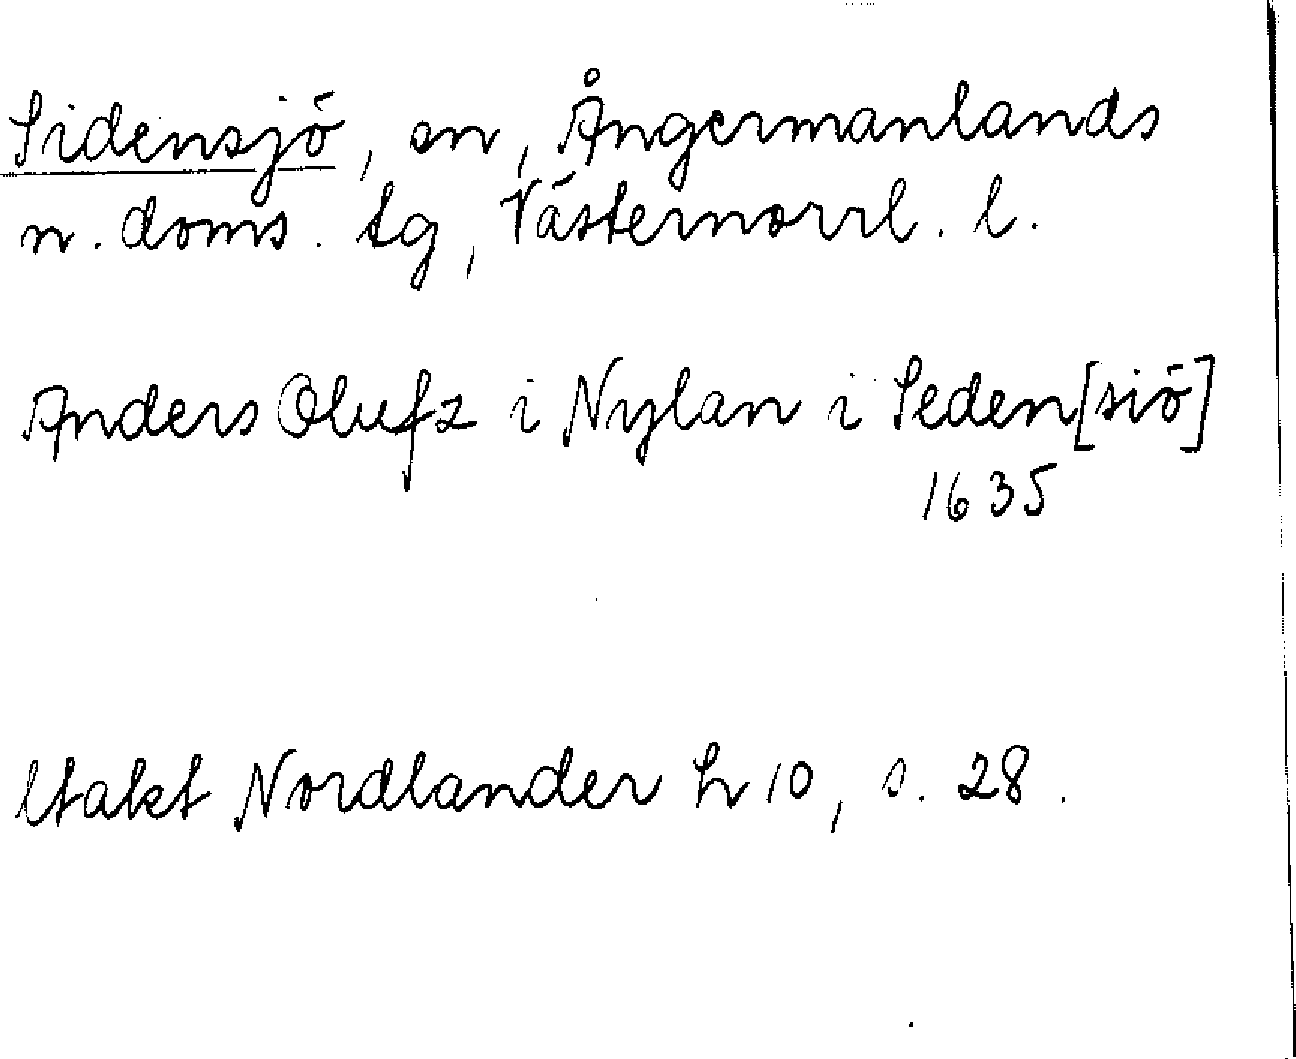 Sidensjö, sn, Ångermanlands
n. doms. tg, Västernorrl. l.
Anders Olufz i Nylan i Seden[siö]
1635
Utakt Nordlander h 10, s. 28.